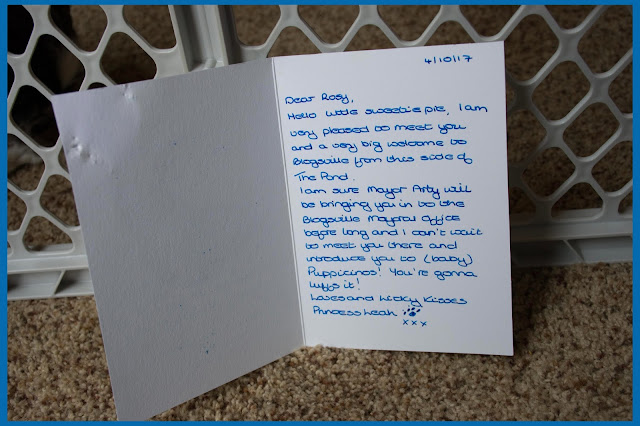 4/10/17
Dear Rosy,
Hello little sweetie pie, I am
very pleased to meet you
and a very big welcome to
Blogsville from this side of
The Pond.
I am sure Mayor Arty will
be bringing you in to the
Blogsville Mayoral Office
before long and I can't wait
to meet you there and
introduce you to (baby)
Puppicinos! You're gonna
luffs it!
Loves and Licky Kisses
Princess Leah
xxx